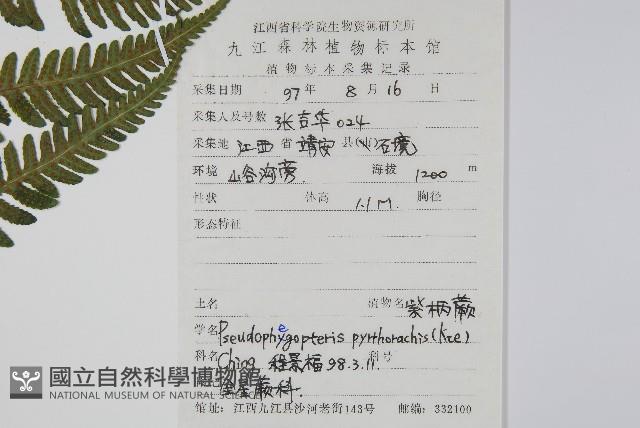 江西省科学院生物资源研究所
九江森林植物标本馆
植物标本采集记录
采集日期 97 年 8 月 16 日
采集人及号数 张吉华 024
采集地 江西 省 靖安 县(山) 石境
环境 山谷沟旁 海拔 1200 m
性状 体高 1.1 M. 胸径
形态特征
土名 植物名 紫柄蕨
学名 Pseudophegopteris pyrrhorachis (Kze)
科名 Ching 程景福 98.3.11. 科号
金星蕨科.
馆址:江西九江县沙河老街143号 邮编:332100
國立自然科學博物館
NATIONAL MUSEUM OF NATURAL